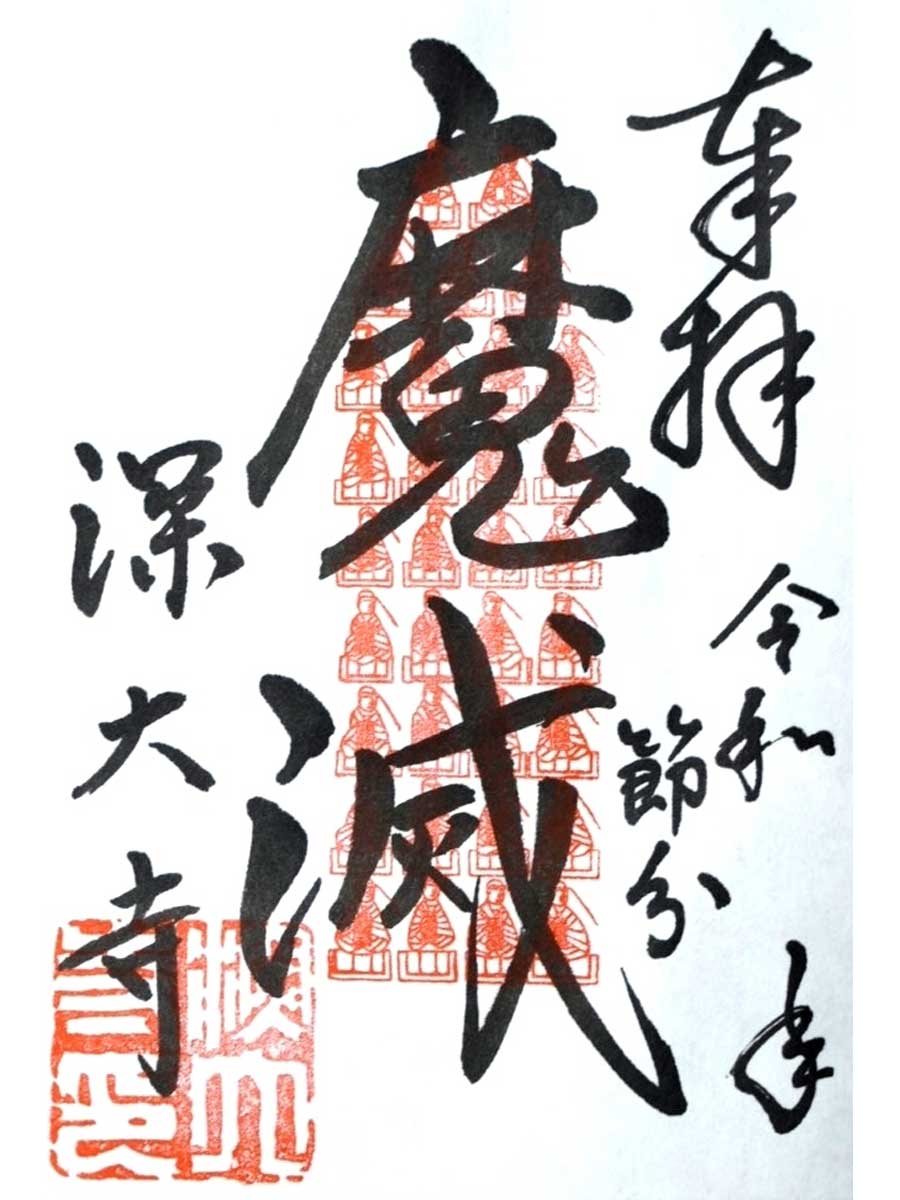 奉拝
令和 年
節分
魔滅
深大寺